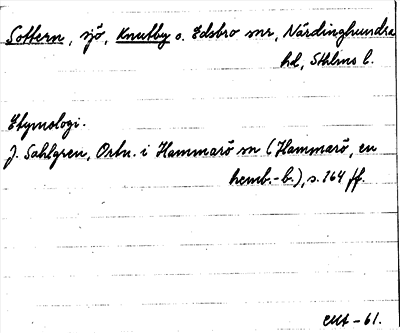 Sottern, sjö, Knutby o. Edsbro snr, Närdinghundra
hd, Sthlms l.
Etymologi.
J. Sahlgren, Ortn. i Hammarö sn (Hammarö, en
hemb.-b.), s. 164 ff.
-61.